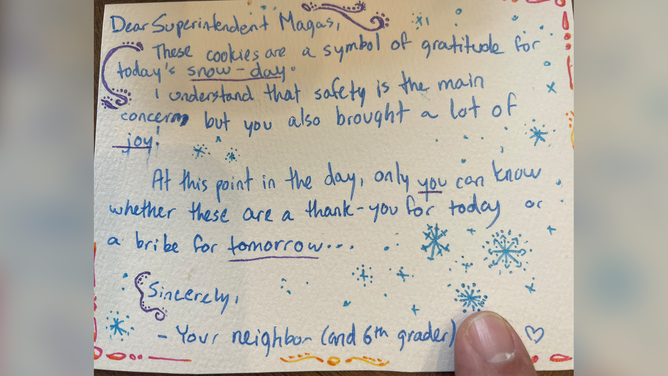 Dear Superintendent Magas,
These cookies are a symbol of gratitude for
today's snow-day.
I understand that safety is the main
concern, but you also brought a lot of
joy!
At this point in the day, only you can know
whether these are a thank-you for today or
a bribe for tomorrow...
Sincerely,
- Your neighbor (and 6th grader)